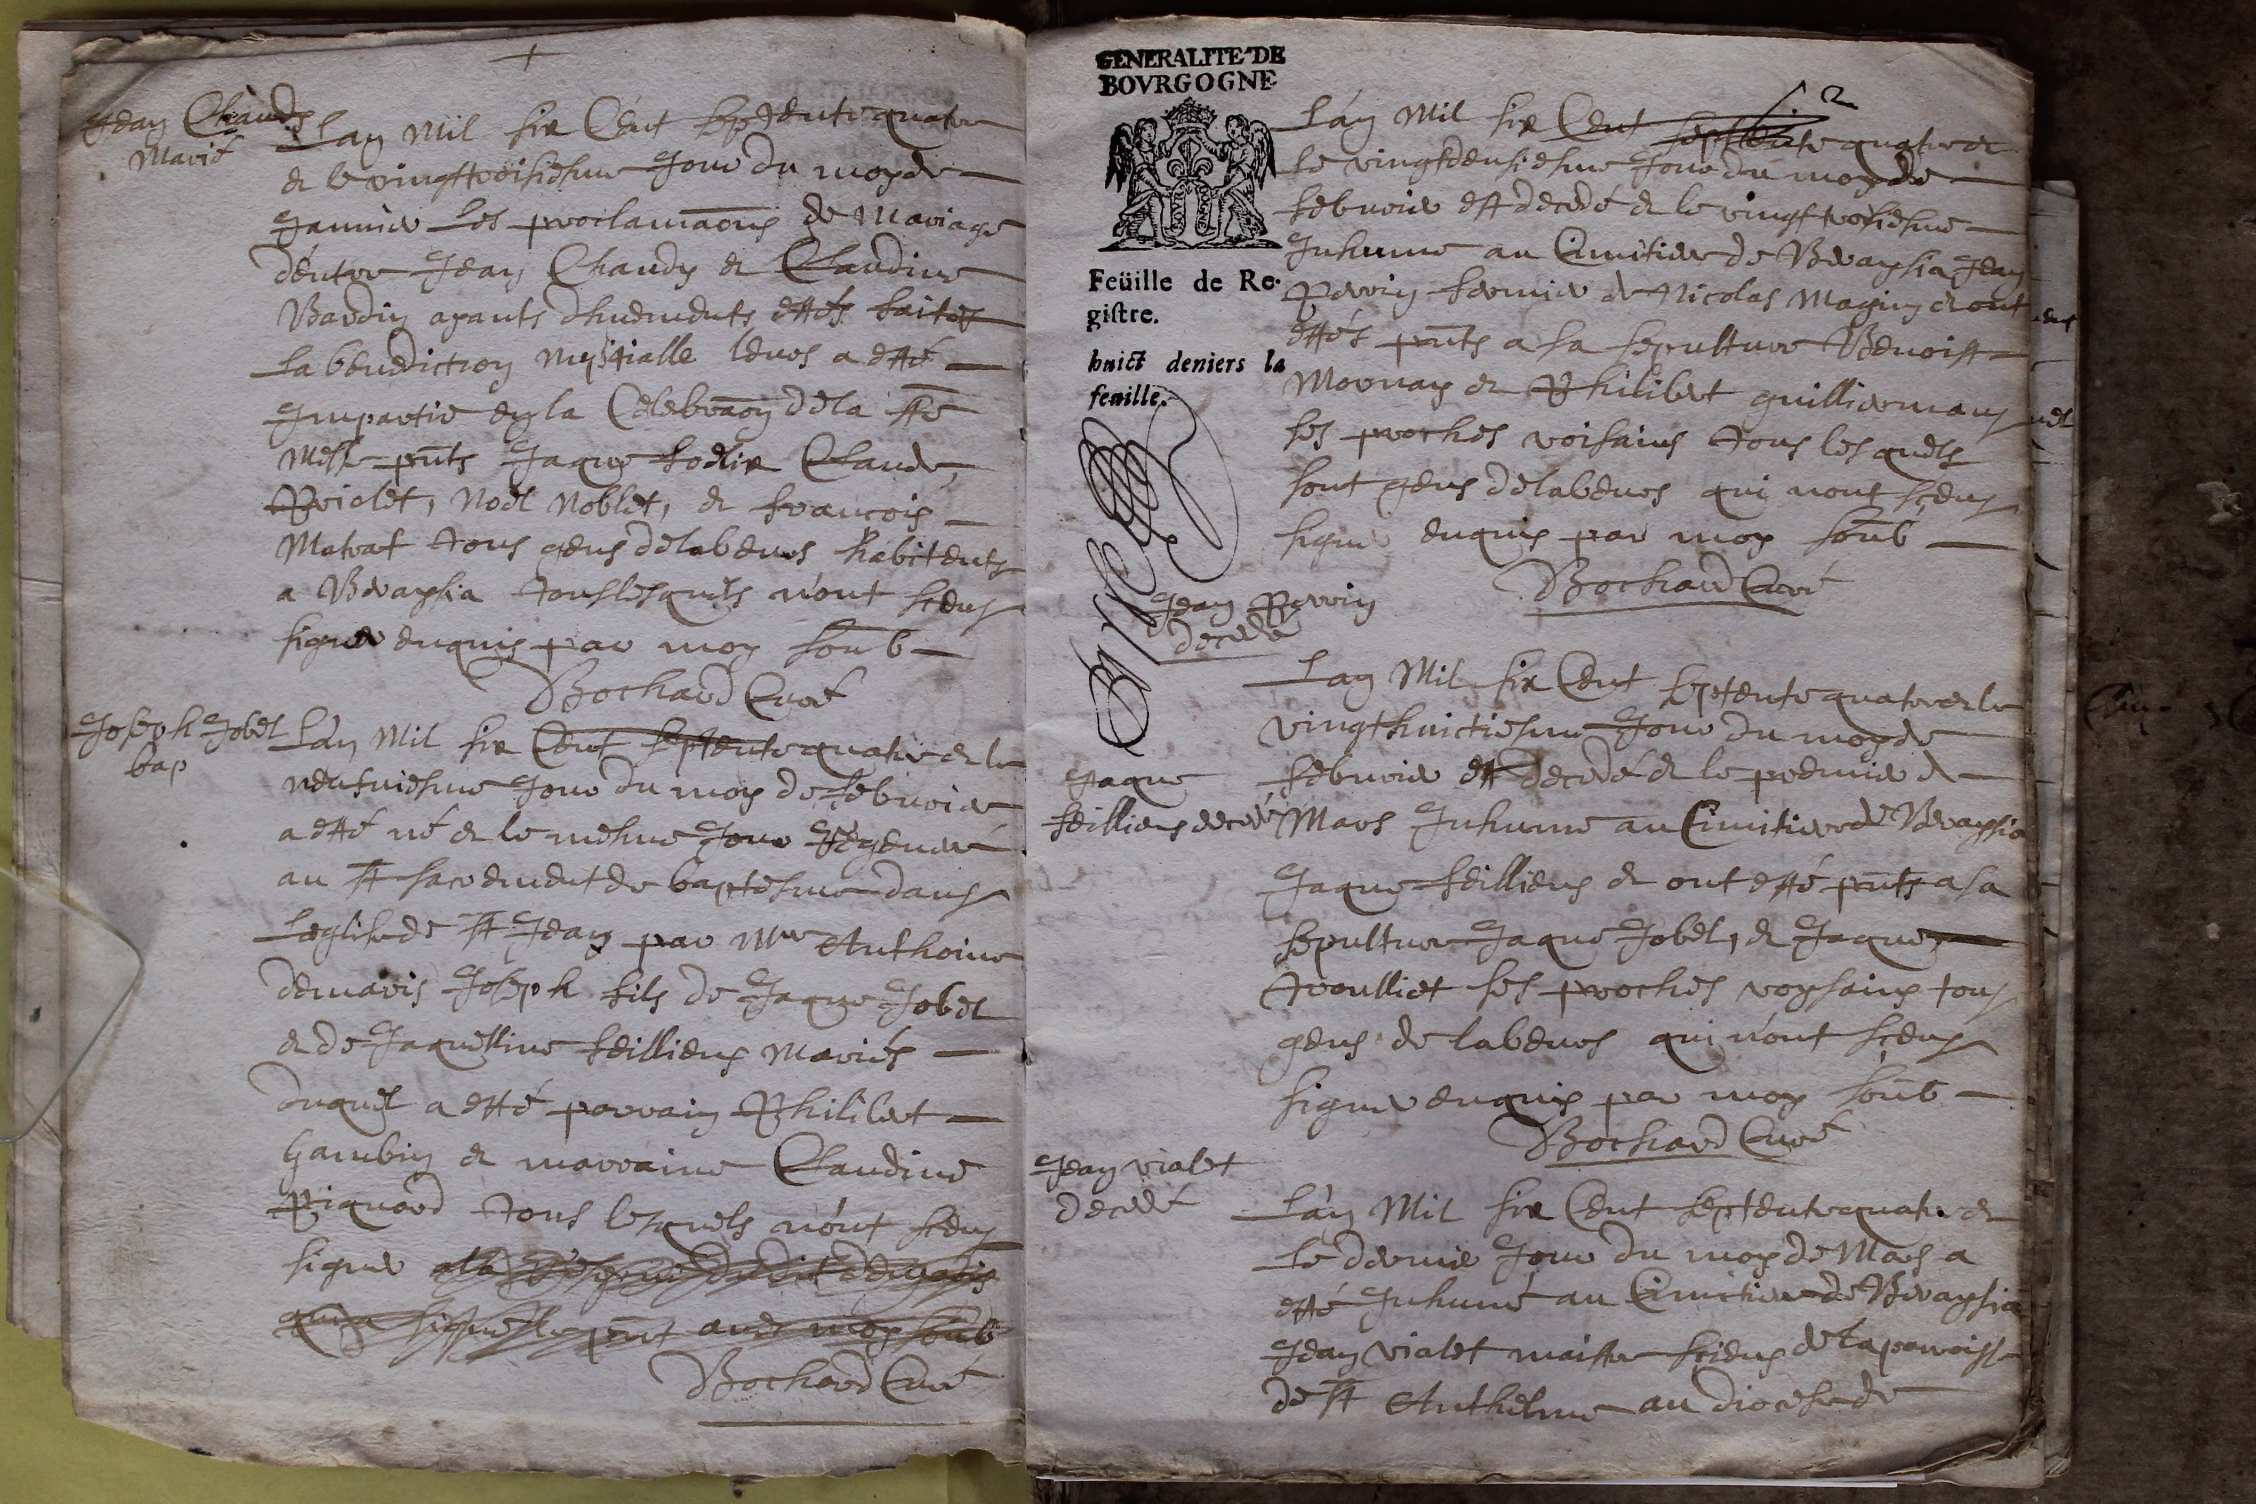 Jean Chandy
Marié
Lan Mil six Cent septente quatre
et le vingttroisiesme Jour du moys de
Janvier les proclamaons de Mariage
d'entre Jean Chandy et Claudine
Bardin ayants dhuements estés faites
la benediction nuptialle leurs a esté
Impartie en la Celebraon de la ste
Messe pnts Jaque Claude
Violet, Noel Noblet, et francois
Matrat tous gens de labeurs habitents
a Bragsia tous lesquels n'ont sceus
signer enquis par moy soub
Bochard Curé
Joseph Jobel
bap
L'an Mil six Cent septente quatre et le
neufviesme Jour du moys de febvrier
a esté né et le mesme Jour regeneré
au st sacrement de baptesme dans
leglise de st Jean par Mre Anthoine
demaris Joseph fils de Jaque Jobel
et de Jaquelline seilliens Mariés
duquel a esté parrain Philibert
Gambin et marraine Claudine
Piquard tous lesquels n'ont sceus
signer
Bochard Curé
GENERALITE DE
BOVRGOGNE
Feüille de Re-
gistre.
huict deniers la
feuille.
2
L'an Mil six Cent septente quatre et
le vingtdeusiesme Jour du moys de
febvrier est decedé et le vingttroisiesme
Inhumé au Cimitiere de Bragsia Jean
Perrin fermier de Nicolas Magnin et ont
estés pnts a sa sepulture Benoist
Mornay et Philibert guilliermans
ses proches voisains tous lesquels
sont gens de labeurs qui nont sceus
signer enquis par moy soub
Bochard Curé
Jean Perrin
decedé
Lan Mil six Cent septente quatre et le
vingthuictiesme Jour du moys de
febvrier est decedé et le premier de
Mars Inhumé au Cimitiere de Bragsia
Jaque seilliens et ont esté pnts a sa
sepulture Jaque Jobel, et Jaque
troulliet ses proches voysains tous
gens de labeurs qui n'ont sceus
signer enquis par moy soub
Bochard Curé
Jaque
seilliens decedé
Jean violet
decedé
L'an Mil six Cent septente quatre et
le dernier Jour du moys de Mars a
esté Inhumé au Cimitiere de Bragsia
Jean violet maistre scieur de la parroisse
de st Anthelme au diocese de